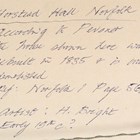 Horstead Hall Norfolk
According to Pevsner
the house shown here was
rebuilt in 1835 & is now
demolished
Ref: Norfolk 1 Page 56
Artist: H. Bright
Early 19th C?